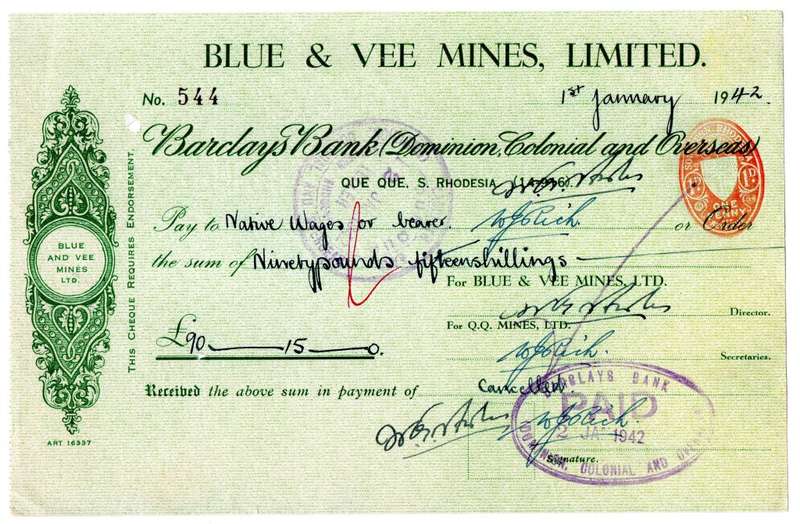 BLUE & VEE MINES, LIMITED.
No. 544
1st January 1942.
Barclays Bank (Dominion, Colonial and Overseas)
QUE QUE, S. RHODESIA
Pay to Native Wages or bearer. or Order
the sum of Ninetypounds fifteenshillings —
For BLUE & VEE MINES, LTD.
Director.
For Q.Q. MINES, LTD.
£90 — 15 — 0.
Secretaries.
Received the above sum in payment of Cancelled
Signature.
THIS CHEQUE REQUIRES ENDORSEMENT.
BLUE
AND VEE
MINES
LTD.
ART 16557
BARCLAYS BANK
PAID
2 JAN 1942
DOMINION, COLONIAL AND
ONE